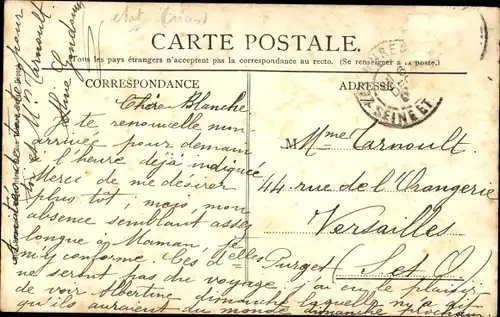 CARTE POSTALE.
Tous les pays étrangers n'acceptent pas la correspondance au recto. (Se renseigner à la poste.)
CORRESPONDANCE
ADRESSE
SEINE ET
Chère Blanche
je te renouvelle mon
arrivée pour demain
à l'heure déjà indiquée
Merci de me désirer
plus tôt ; mais, mon
absence semblant assez
longue à Maman, je
m'y conforme. Ces delles
Purget
ne seront pas du voyage, j'ai eu le plaisir
de voir Albertine dimanche laquelle m'a dit
qu'ils auraient du monde dimanche prochain
Mme Carnoult
44 rue de l'Orangerie
Versailles
(S et O)
pour
M. Carnoult
Aline